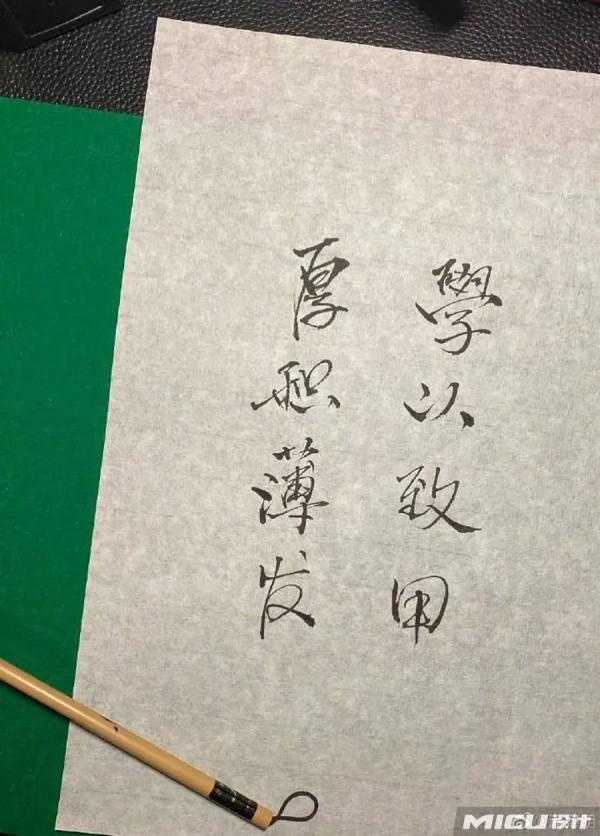 學以致用
厚积薄发
MICU设计